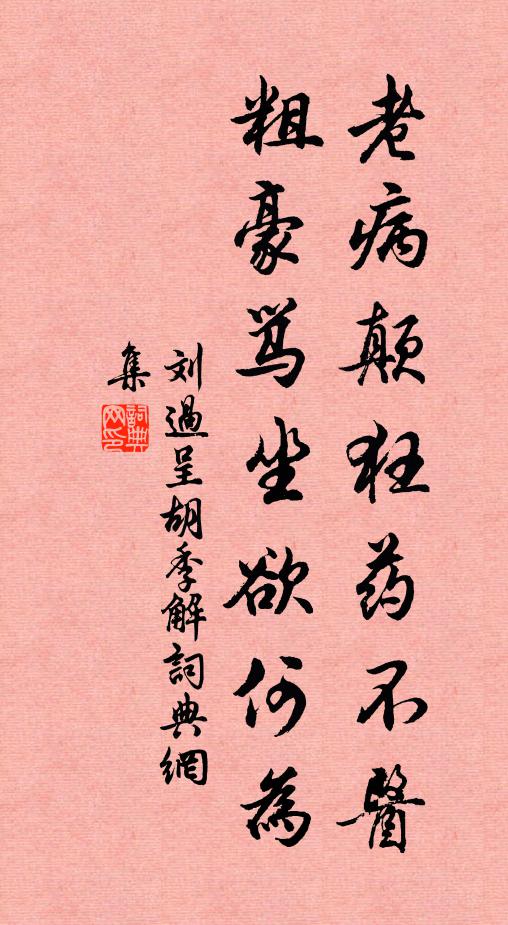 老病颠狂药不醫
粗豪骂坐欲何為
刘過呈胡季解詞典網
集
詞典
网印